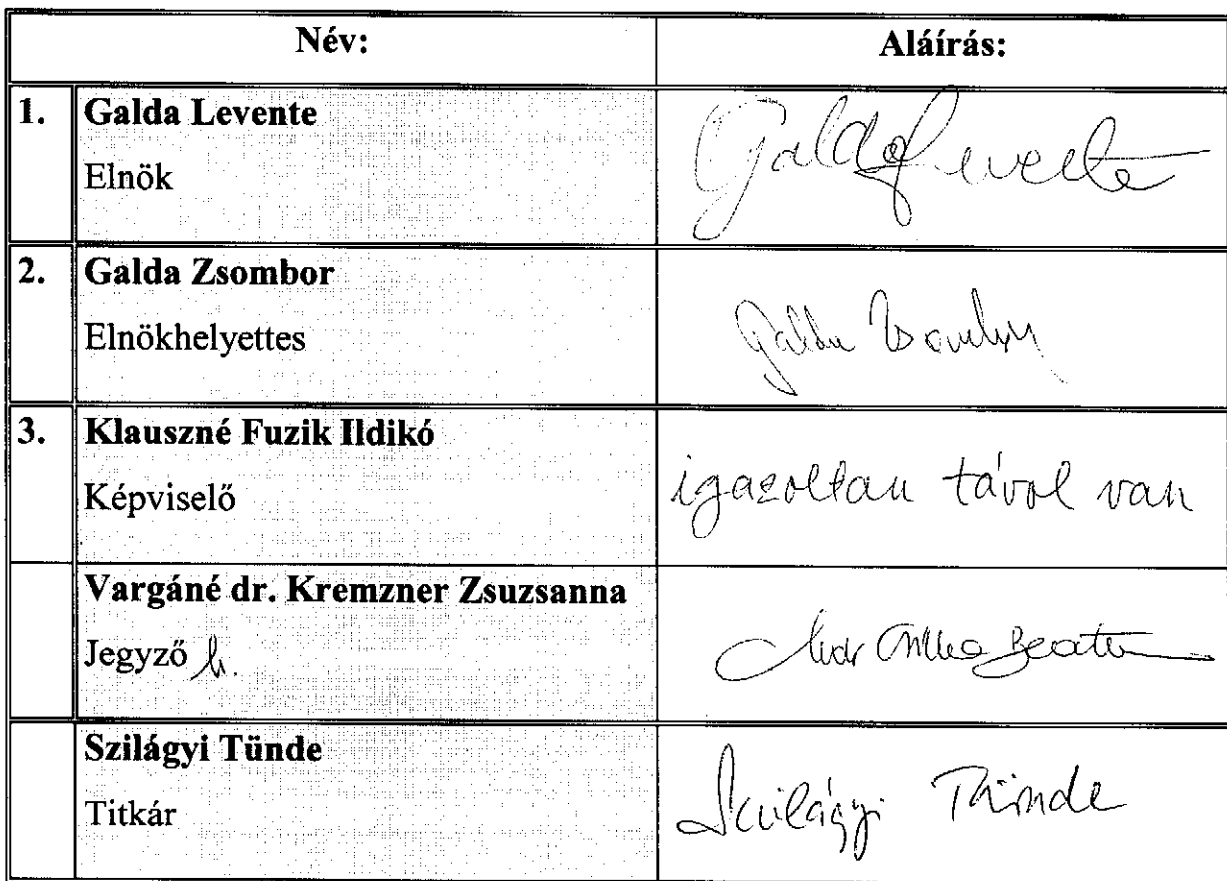 Név: Aláírás:
1. Galda Levente
Elnök
Galda Levente
2. Galda Zsombor
Elnökhelyettes
Galda Zsombor
3. Klauszné Fuzik Ildikó
Képviselő
igazoltan távol van
Vargáné dr. Kremzner Zsuzsanna
Jegyző h.
Beata
Szilágyi Tünde
Titkár
Szilágyi Tünde